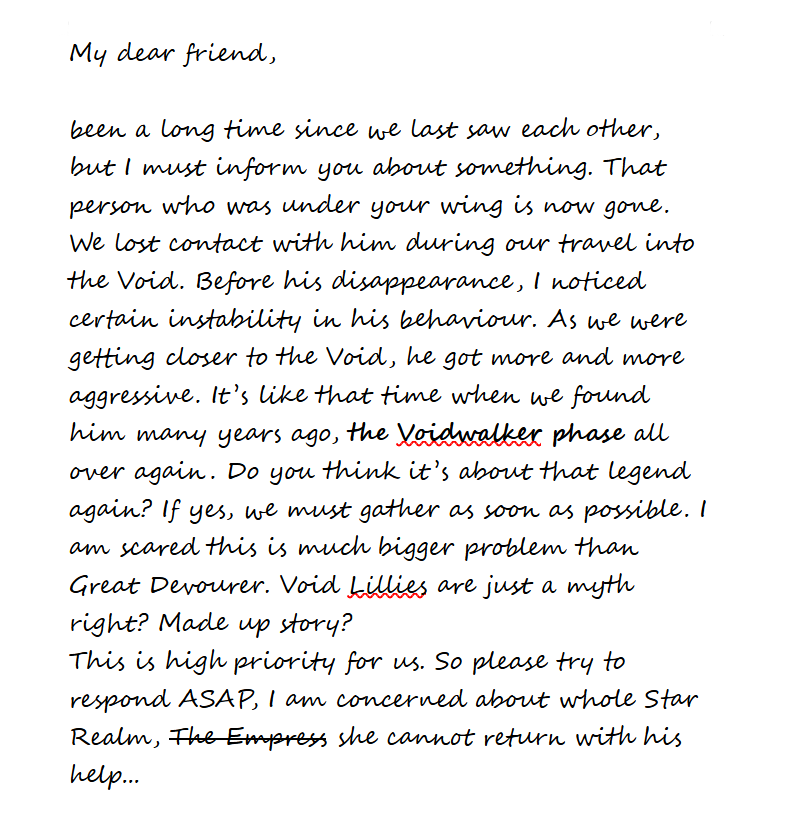 My dear friend,
been a long time since we last saw each other,
but I must inform you about something. That
person who was under your wing is now gone.
We lost contact with him during our travel into
the Void. Before his disappearance, I noticed
certain instability in his behaviour. As we were
getting closer to the Void, he got more and more
aggressive. It's like that time when we found
him many years ago, the Voidwalker phase all
over again. Do you think it's about that legend
again? If yes, we must gather as soon as possible. I
am scared this is much bigger problem than
Great Devourer. Void Lillies are just a myth
right? Made up story?
This is high priority for us. So please try to
respond ASAP, I am concerned about whole Star
Realm, The Empress she cannot return with his
help...